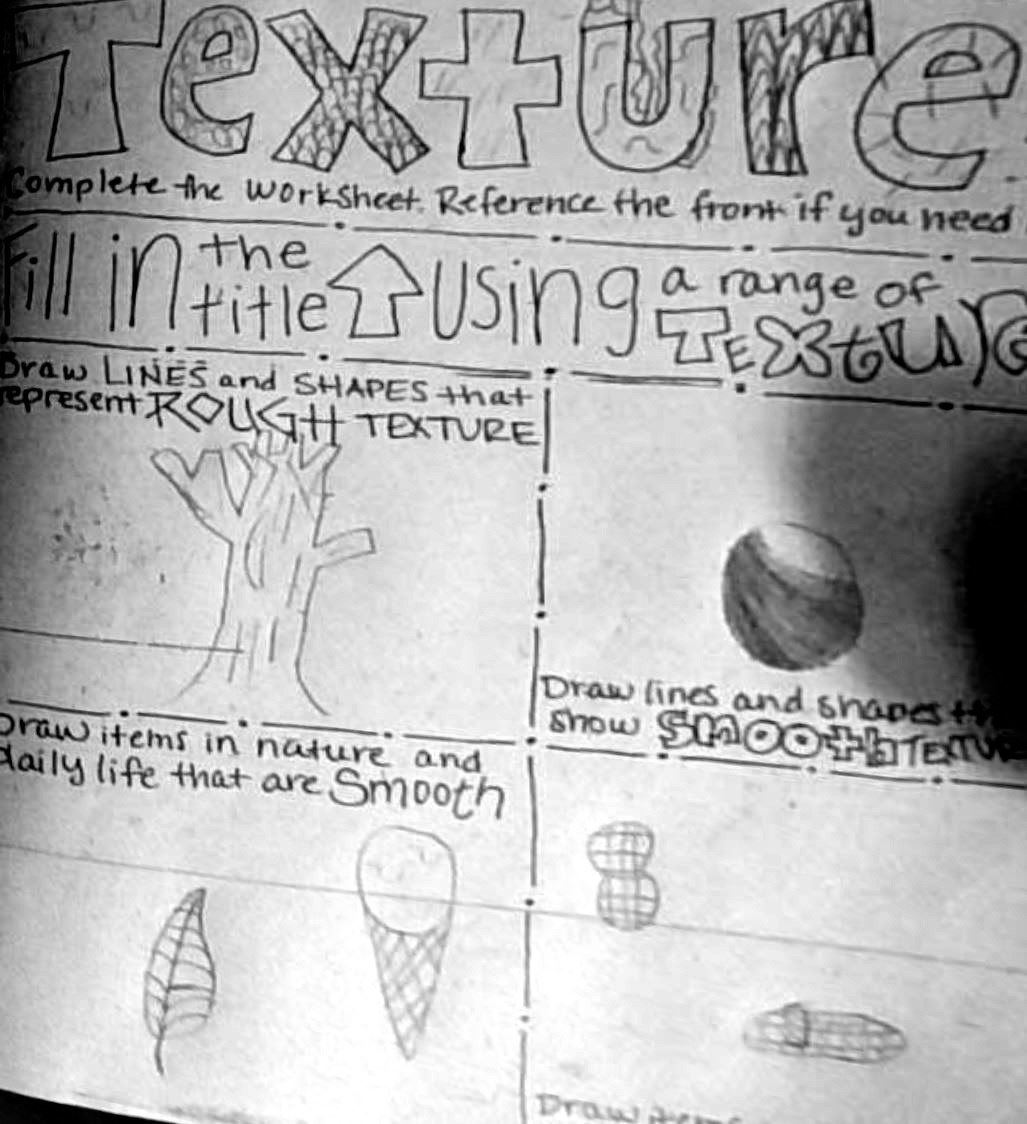 Texture
Complete the worksheet. Reference the front if you need
Fill in the title using a range of
TExtUR
Draw LINES and SHAPES that
represent ROUGH TEXTURE
Draw lines and shapes
show SMOOth TEXTURE
Draw items in nature and
daily life that are Smooth
Draw items